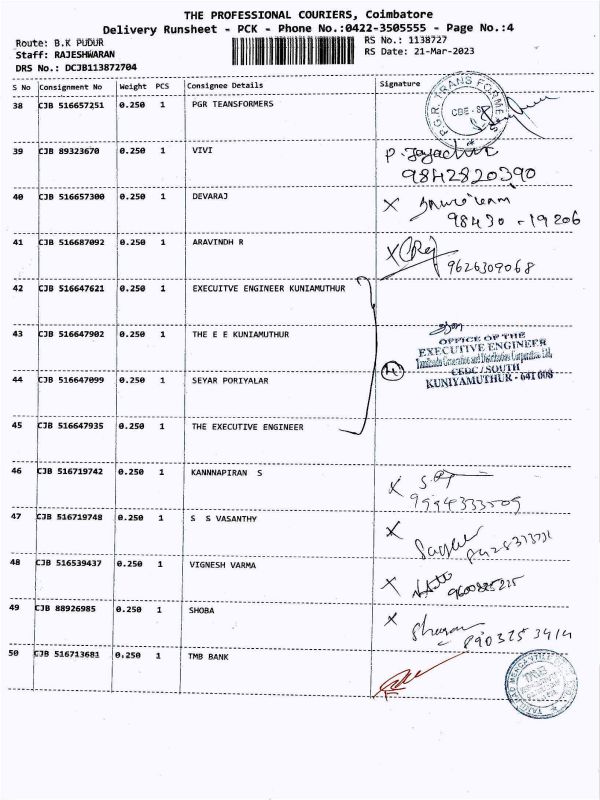 THE PROFESSIONAL COURIERS, Coimbatore
Delivery Runsheet - PCK - Phone No.:0422-3505555 - Page No.:4
Route: B.K PUDUR
RS No.: 1138727
Staff: RAJESHWARAN
RS Date: 21-Mar-2023
DRS No.: DCJB113872704
S No Consignment No Weight PCS Consignee Details Signature
38 CJB 516657251 0.250 1 PGR TEANSFORMERS
P.G.R. TRANS FORMERS
CBE - 8
39 CJB 89323670 0.250 1 VIVI
9842820390
40 CJB 516657300 0.250 1 DEVARAJ X
98430 - 19206
41 CJB 516687092 0.250 1 ARAVINDH R X
9626309068
42 CJB 516647621 0.250 1 EXECUITVE ENGINEER KUNIAMUTHUR
43 CJB 516647902 0.250 1 THE E E KUNIAMUTHUR
OFFICE OF THE
EXECUTIVE ENGINEER
Tamilnadu Generation and Distribution Corporation Ltd,
CEDC / SOUTH
KUNIYAMUTHUR - 641 008
44 CJB 516647099 0.250 1 SEYAR PORIYALAR 4
45 CJB 516647935 0.250 1 THE EXECUTIVE ENGINEER
46 CJB 516719742 0.250 1 KANNNAPIRAN S X
9994333509
47 CJB 516719748 0.250 1 S S VASANTHY X
48 CJB 516539437 0.250 1 VIGNESH VARMA X
49 CJB 88926985 0.250 1 SHOBA X
8903253414
50 CJB 516713681 0.250 1 TMB BANK